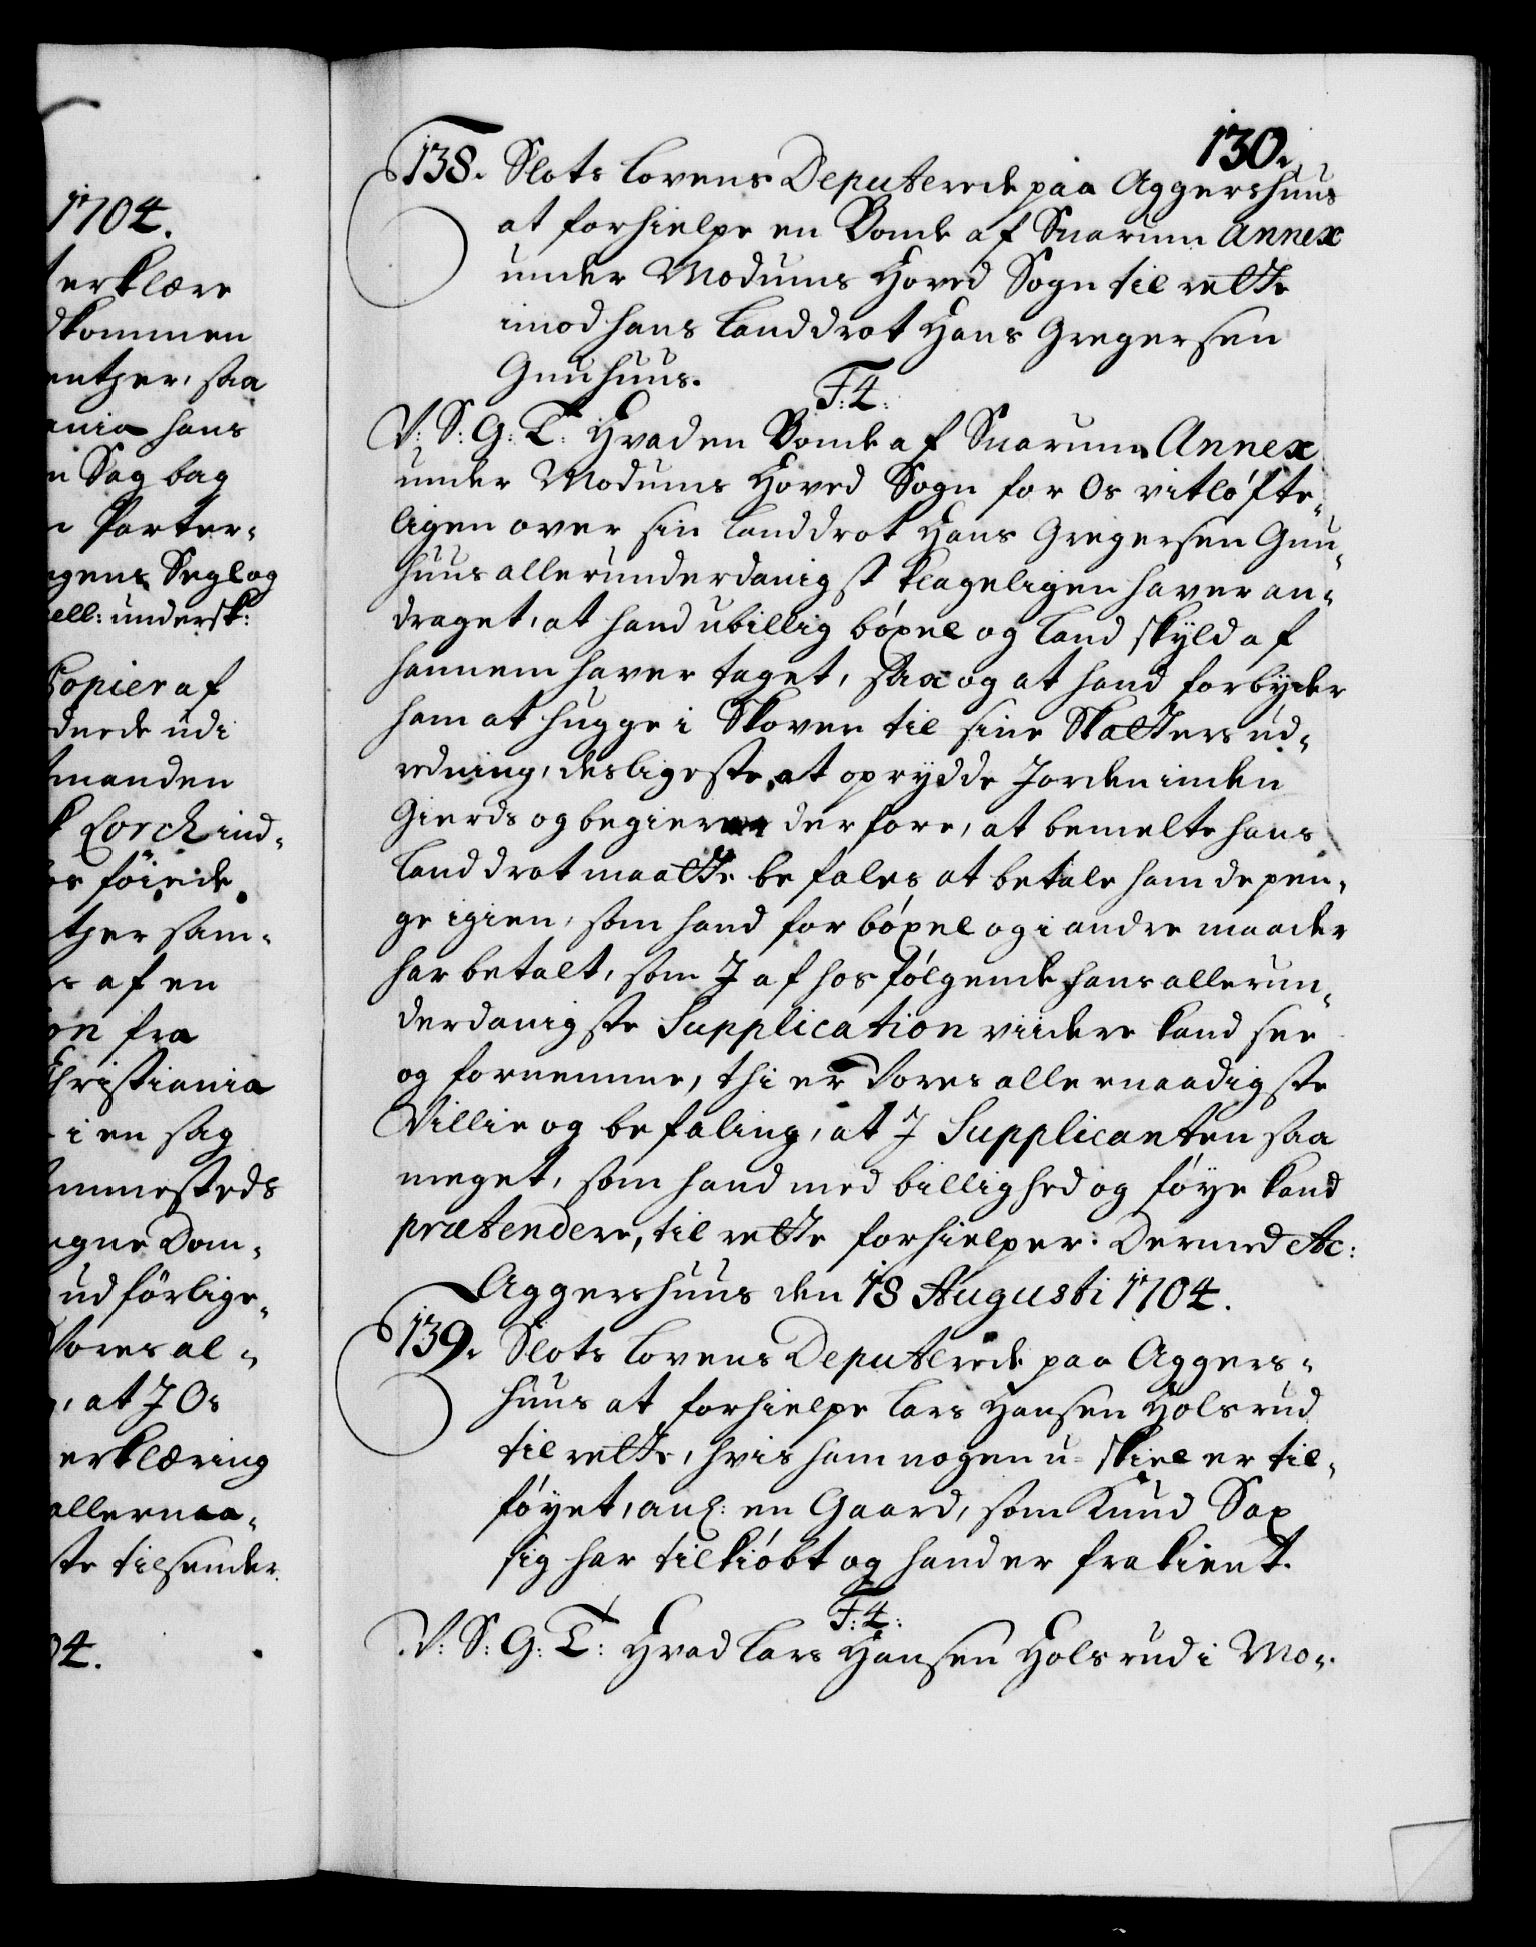 1704.
erklære
dkommen
entzer, saa
ania hans
n Sag bag
Parter¬
ngens Segl og
ell: undersk:
Copier af
derede udi
manden
Lorck ind¬
føiede
tzer sam¬
af en
on fra
Christiania
i en sag
mmesteds
egne Dom¬
udførlige¬
Vores al¬
, at J Os
erklæring
allernaa¬
ste tilsender
04.
130.
138. Slots Lovens Deputerede paa Aggershuus
at forhielpe en Bonde af Snarum Annex
under Modums Hoved Sogn til rette
imod hans Landdrot Hans Gregersen
Gunhuus.
F: 4:
V: S: G: T: Hvad en Bonde af Snarum Annex
under Modums Hoved Sogn for Os vitløfte¬
ligen over sin Landdrot Hans Gregersen Gun¬
huus allerunderdanigst klageligen haver an¬
draget, at hand ubillig bøxel og Land skyld af
hannem haver taget, saa og at hand forbyder
ham at hugge i Skoven til sine Skatters ud¬
redning, desligeste, at oprydde Jorden inden
Gierds og begierer derfore, at bemelte hans
Landdrot maatte befales at betale ham de pen¬
ge igien, som hand for bøxel og i andre maader
har betalt, som J af hos følgende hans allerun¬
derdanigste Supplication viidere kand see
og fornemme, thi er Vores allernaadigste
Villie og befaling, at J Supplicanten saa
meget, som hand med billighed og føye kand
prætendere, til rette forhielper. Dermed etc:
Aggershuus den 18 Augusti 1704.
139. Slots Lovens Deputerede paa Aggers¬
huus at forhielpe Lars Hansen Holsrud
til rette, hvis ham nogen u-skiel er til¬
føyet, anl: en Gaard, som Knud Sax
sig har tilkiøbt og hand er frakient.
F: 4:
V: S: G: T: Hvad Lars Hansen Holsrud i Mo¬